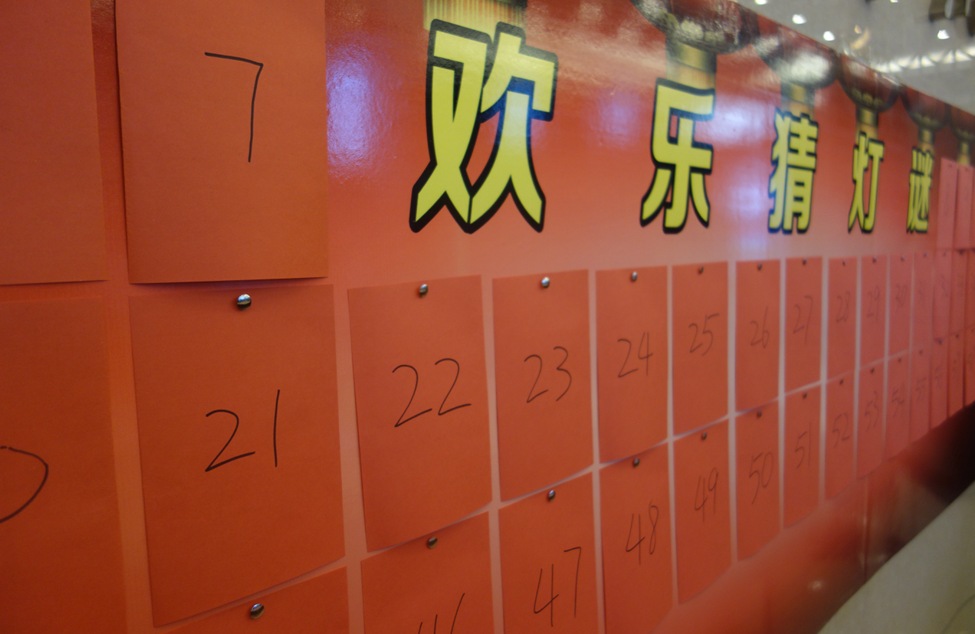 7
欢乐猜灯谜
21 22 23 24 25 26 27 28 29 30
47 48 49 50 51 52 53 54